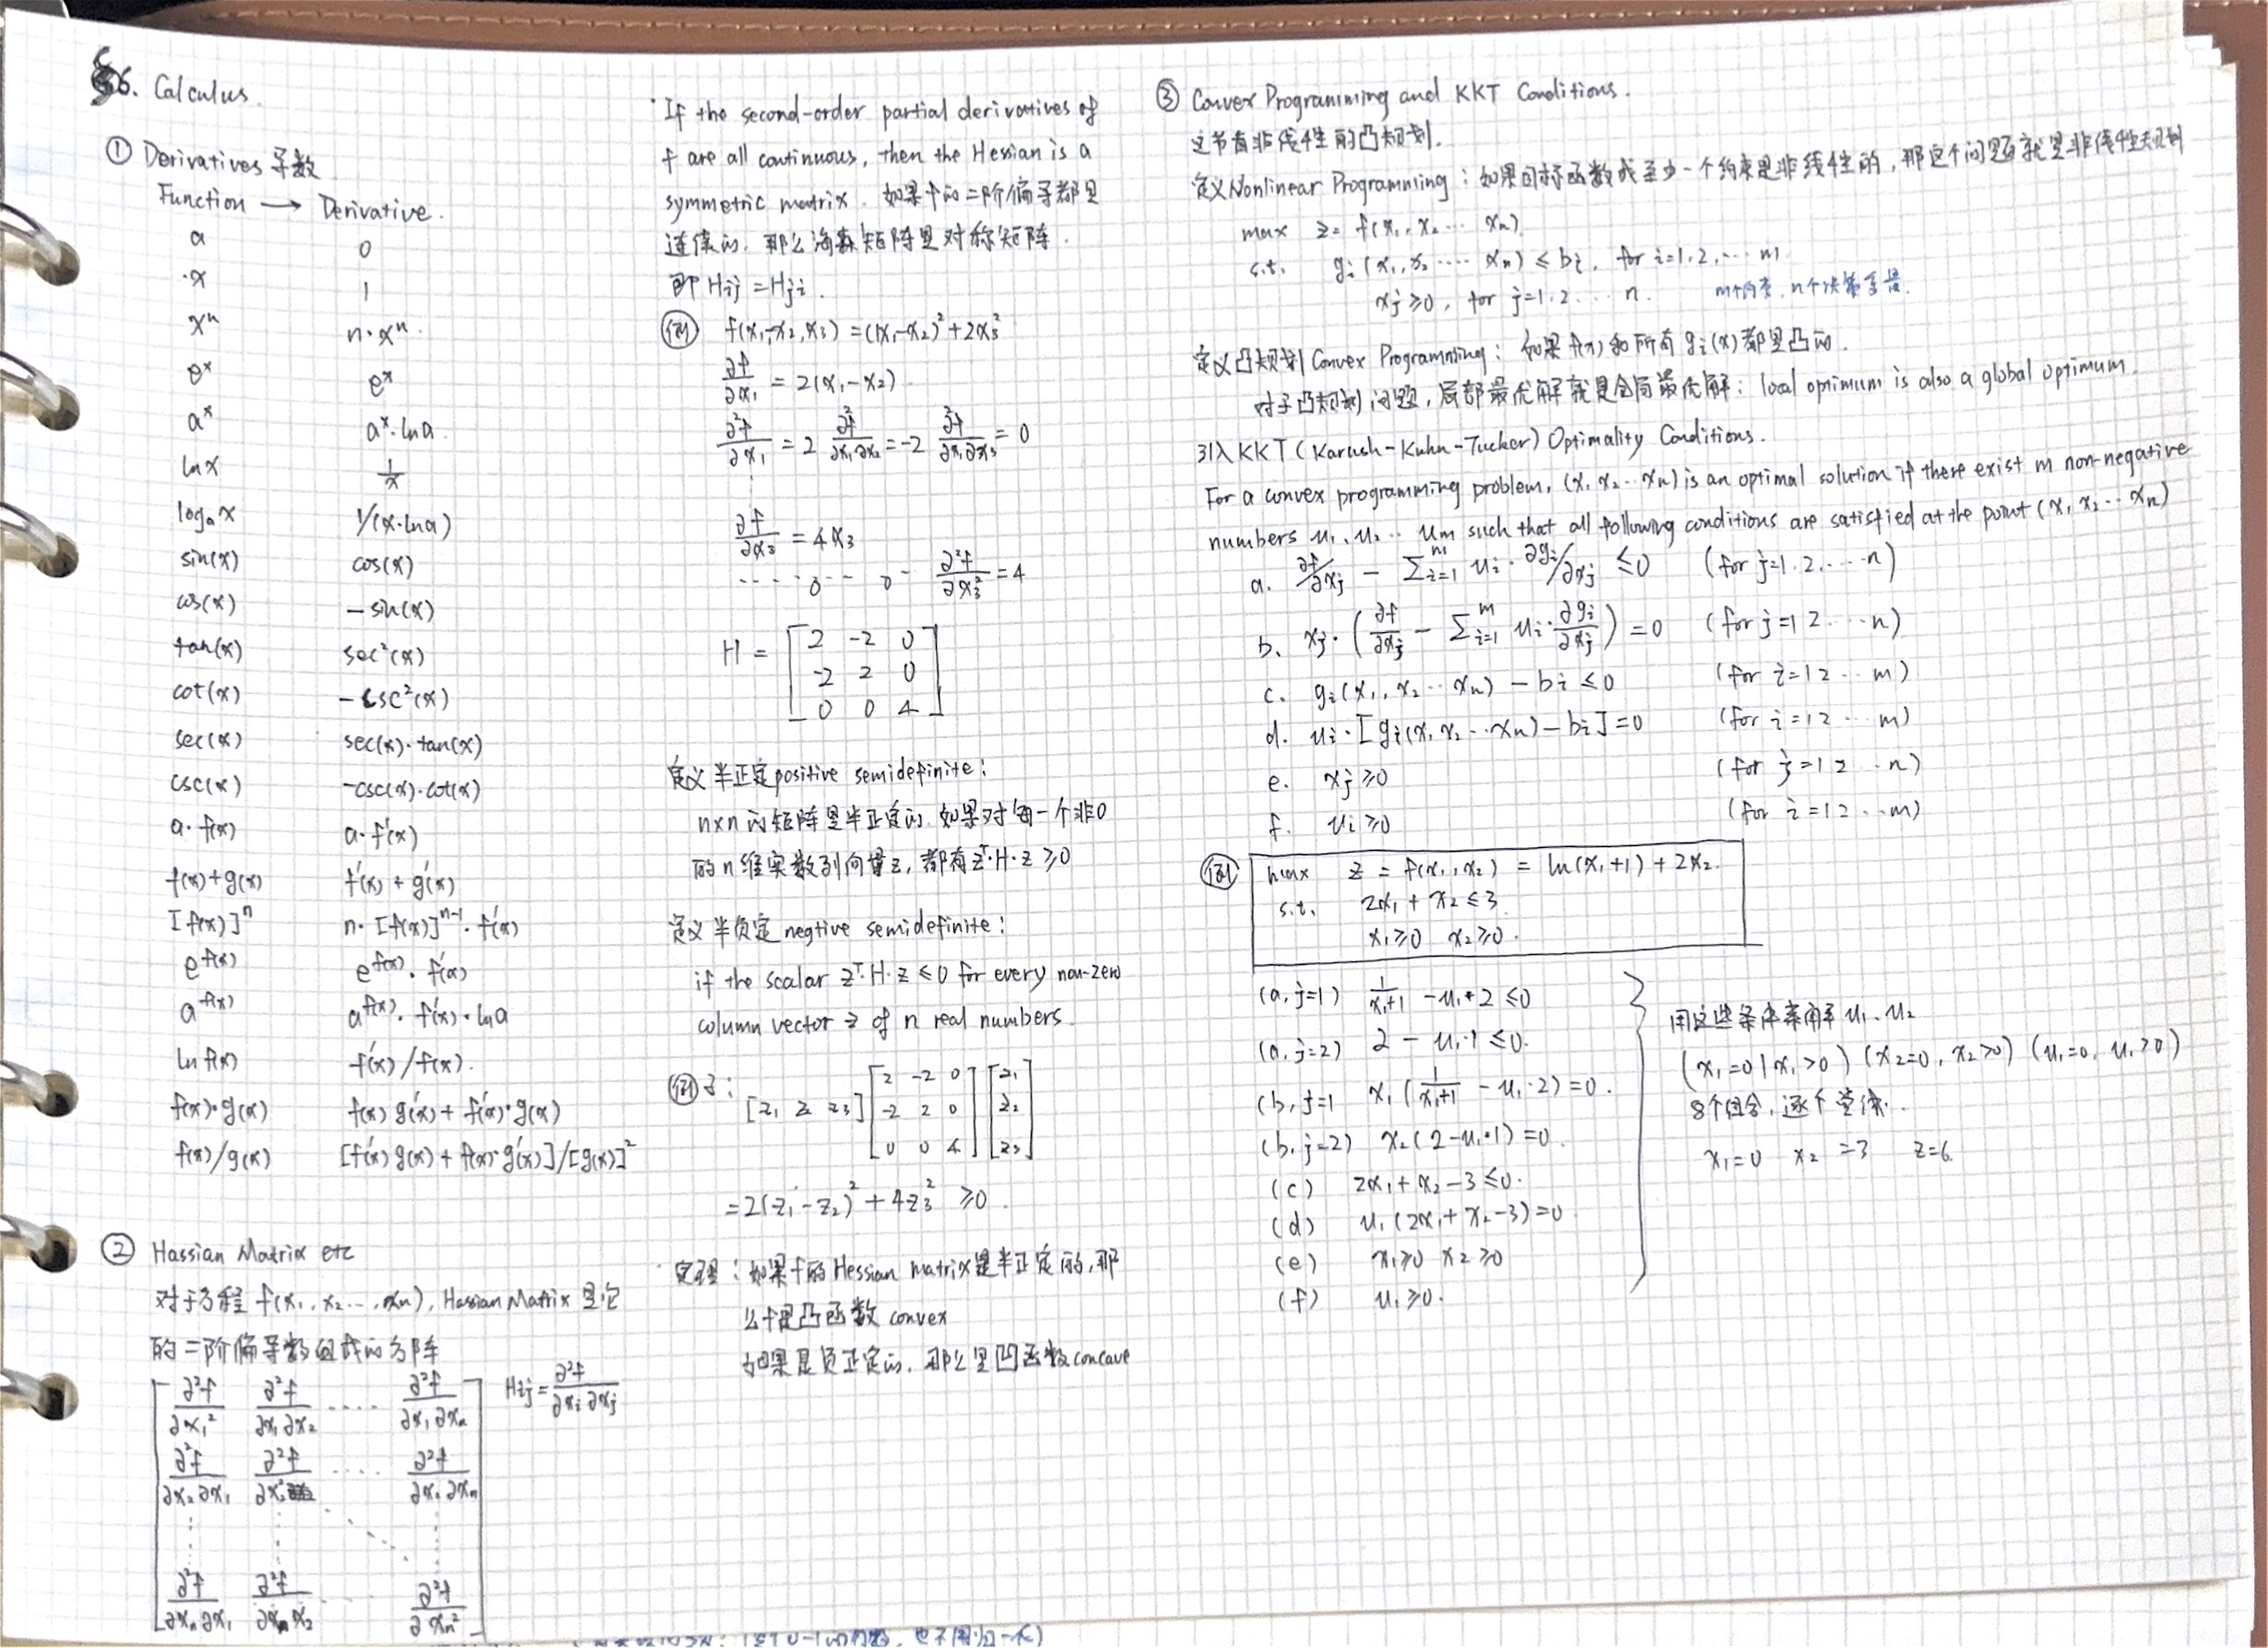 §6. Calculus.
① Derivatives 导数
Function → Derivative.
a 0
x 1
xⁿ n·xⁿ.
eˣ eˣ
aˣ aˣ·lna.
lnx 1/x
logₐx 1/(x·lna)
sin(x) cos(x)
cos(x) -sin(x)
tan(x) sec²(x)
cot(x) -csc²(x)
sec(x) sec(x)·tan(x)
csc(x) -csc(x)·cot(x)
a·f(x) a·f'(x)
f(x)+g(x) f'(x)+g'(x)
[f(x)]ⁿ n·[f(x)]ⁿ⁻¹·f'(x)
e^f(x) e^f(x)·f'(x)
a^f(x) a^f(x)·f'(x)·lna
lnf(x) f'(x)/f(x).
f(x)·g(x) f(x)g'(x)+f'(x)·g(x)
f(x)/g(x) [f'(x)g(x)+f(x)·g'(x)]/[g(x)]²
② Hassian Matrix etc
对于方程 f(x₁,x₂…,xₙ), Hassian Matrix 是它
的二阶偏导数组成的方阵
∂²f/∂x₁² ∂²f/∂x₁∂x₂ ···· ∂²f/∂x₁∂xₙ Hij = ∂²f/∂xi∂xj
∂²f/∂x₂∂x₁ ∂²f/∂x₂² ···· ∂²f/∂x₂∂xₙ
∂²f/∂xₙ∂x₁ ∂²f/∂xₙx₂ ···· ∂²f/∂xₙ²
·If the second-order partial derivatives of
f are all continuous, then the Hessian is a
symmetric matrix. 如果f的二阶偏导都是
连续的, 那么海森矩阵是对称矩阵.
即 Hij = Hji.
例 f(x₁,x₂,x₃) = (x₁-x₂)²+2x₃²
∂f/∂x₁ = 2(x₁-x₂)
∂²f/∂x₁ = 2 ∂²f/∂x₁∂x₂ = -2 ∂²f/∂x₁∂x₃ = 0
∂f/∂x₃ = 4x₃
···· 0 ·· 0 · ∂²f/∂x₃² = 4
H = [2 -2 0
-2 2 0
0 0 4]
定义 半正定 positive semidefinite:
n×n 的矩阵是半正定的, 如果对每一个非0
的n维实数列向量z, 都有 zᵀ·H·z ≥0
定义 半负定 negtive semidefinite:
if the scalar zᵀ·H·z ≤0 for every non-zero
column vector z of n real numbers.
[z₁ z₂ z₃] [2 -2 0 [z₁
-2 2 0 z₂
0 0 4] z₃]
=2(z₁-z₂)²+4z₃² ≥0.
·定理: 如果f的Hessian matrix是半正定的, 那
么f是凸函数 convex
如果是负正定的, 那么是凹函数 concave
③ Convex Programming and KKT Conditions.
这节有非线性的凸规划.
定义 Nonlinear Programming: 如果目标函数或至少一个约束是非线性的, 那这个问题就是非线性规划
max z= f(x₁,x₂… xₙ)
s.t. gi(x₁,x₂…… xₙ) ≤ bi, for i=1,2,… m
xj ≥0, for j=1,2… n. m个约束, n个决策变量.
定义 凸规划 Convex Programming: 如果 f(x) 和所有 gi(x) 都是凸的.
对于凸规划问题, 局部最优解就是全局最优解: local optimum is also a global optimum.
引入 KKT (Karush-Kuhn-Tucker) Optimality Conditions.
For a convex programming problem, (x₁ x₂…xₙ) is an optimal solution if there exist m non-negative
numbers u₁, u₂… um such that all following conditions are satisfied at the point (x₁ x₂…xₙ)
a. ∂f/∂xj - Σᵢ₌₁ᵐ ui·∂gi/∂xj ≤0 (for j=1,2,…n)
b. xj·(∂f/∂xj - Σᵢ₌₁ᵐ ui·∂gi/∂xj) =0 (for j=1 2…n)
c. gi(x₁,x₂…xₙ) - bi ≤0 (for i=1 2…m)
d. ui·[gi(x₁ x₂…xₙ)-bi]=0 (for i=1 2…m)
e. xj ≥0 (for j=1 2…n)
f. ui ≥0 (for i=1 2…m)
例 max z = f(x₁,x₂) = ln(x₁+1)+2x₂.
s.t. 2x₁+x₂≤3
x₁≥0 x₂≥0.
(a, j=1) 1/(x₁+1) -u₁·2 ≤0
(a, j=2) 2 - u₁·1 ≤0.
(b, j=1 x₁(1/(x₁+1) -u₁·2)=0.
(b, j=2) x₂(2-u₁·1)=0.
(c) 2x₁+x₂-3≤0.
(d) u₁(2x₁+x₂-3)=0
(e) x₁≥0 x₂≥0
(f) u₁≥0.
用这些条件来解 u₁、u₂
(x₁=0|x₁>0) (x₂=0, x₂>0) (u₁=0, u₁>0)
8个组合, 逐个
x₁=0 x₂=3 z=6.